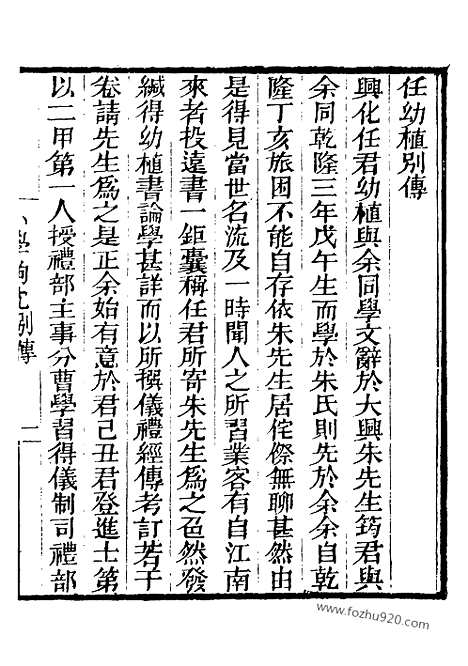 任幼植別傳
興化任君幼植與余同學文辭於大興朱先生筠君與
余同乾隆三年戊午生而學於朱氏則先於余余自乾
隆丁亥旅困不能自存依朱先生居侘傺無聊甚然由
是得見當世名流及一時聞人之所習業客有自江南
來者投遠書一鉅囊稱任君所寄朱先生爲之色然發
緘得幼植書論學甚詳而以所撰儀禮經傳考訂若干
卷請先生爲之是正余始有意於君己丑君登進士第
以二甲第一人授禮部主事分曹學習得儀制司禮部
小學鉤沈別傳
二
www.fozhu920.com